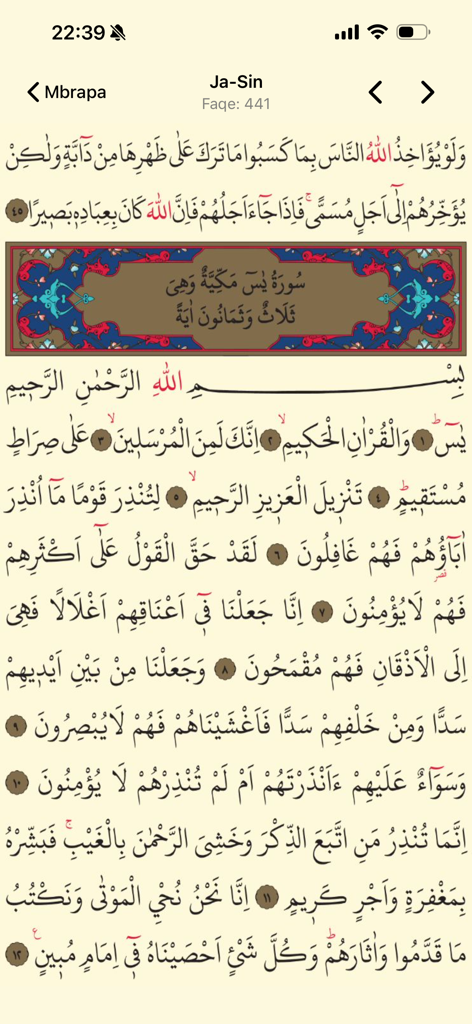 22:39
Mbrapa
Ja-Sin
Faqe: 441
وَلَوْ يُؤَاخِذُ اللّٰهُ النَّاسَ بِمَا كَسَبُوا مَا تَرَكَ عَلٰى ظَهْرِهَا مِنْ دَٓابَّةٍ وَلٰكِنْ
يُؤَخِّرُهُمْ اِلٰٓى اَجَلٍ مُسَمًّىۚ فَاِذَا جَٓاءَ اَجَلُهُمْ فَاِنَّ اللّٰهَ كَانَ بِعِبَادِه۪ بَص۪يرًا ٤٥
سُورَةُ يٰسٓ مَكِّيَّةٌ وَهِىَ
ثَلَاثٌ وَثَمَانُونَ اٰيَةً
بِسْمِ اللّٰهِ الرَّحْمٰنِ الرَّح۪يمِ
يٰسٓۜ ١ وَالْقُرْاٰنِ الْحَك۪يمِۙ ٢ اِنَّكَ لَمِنَ الْمُرْسَل۪ينَۙ ٣ عَلٰى صِرَاطٍ
مُسْتَق۪يمٍۜ ٤ تَنْز۪يلَ الْعَز۪يزِ الرَّح۪يمِۙ ٥ لِتُنْذِرَ قَوْمًا مَٓا اُنْذِرَ
اٰبَٓاؤُ۬هُمْ فَهُمْ غَافِلُونَ ٦ لَقَدْ حَقَّ الْقَوْلُ عَلٰٓى اَكْثَرِهِمْ
قصر
فَهُمْ لَا يُؤْمِنُونَ ٧ اِنَّا جَعَلْنَا ف۪ٓى اَعْنَاقِهِمْ اَغْلَالًا فَهِىَ
اِلَى الْاَذْقَانِ فَهُمْ مُقْمَحُونَ ٨ وَجَعَلْنَا مِنْ بَيْنِ اَيْد۪يهِمْ
سَدًّا وَمِنْ خَلْفِهِمْ سَدًّا فَاَغْشَيْنَاهُمْ فَهُمْ لَا يُبْصِرُونَ ٩
وَسَوَٓاءٌ عَلَيْهِمْ ءَاَنْذَرْتَهُمْ اَمْ لَمْ تُنْذِرْهُمْ لَا يُؤْمِنُونَ ١٠
اِنَّمَا تُنْذِرُ مَنِ اتَّبَعَ الذِّكْرَ وَخَشِىَ الرَّحْمٰنَ بِالْغَيْبِۚ فَبَشِّرْهُ
بِمَغْفِرَةٍ وَاَجْرٍ كَر۪يمٍ ١١ اِنَّا نَحْنُ نُحْيِ الْمَوْتٰى وَنَكْتُبُ
مَا قَدَّمُوا وَاٰثَارَهُمْۜ وَكُلَّ شَىْءٍ اَحْصَيْنَاهُ ف۪ٓى اِمَامٍ مُب۪ينٍ۟ ١٢